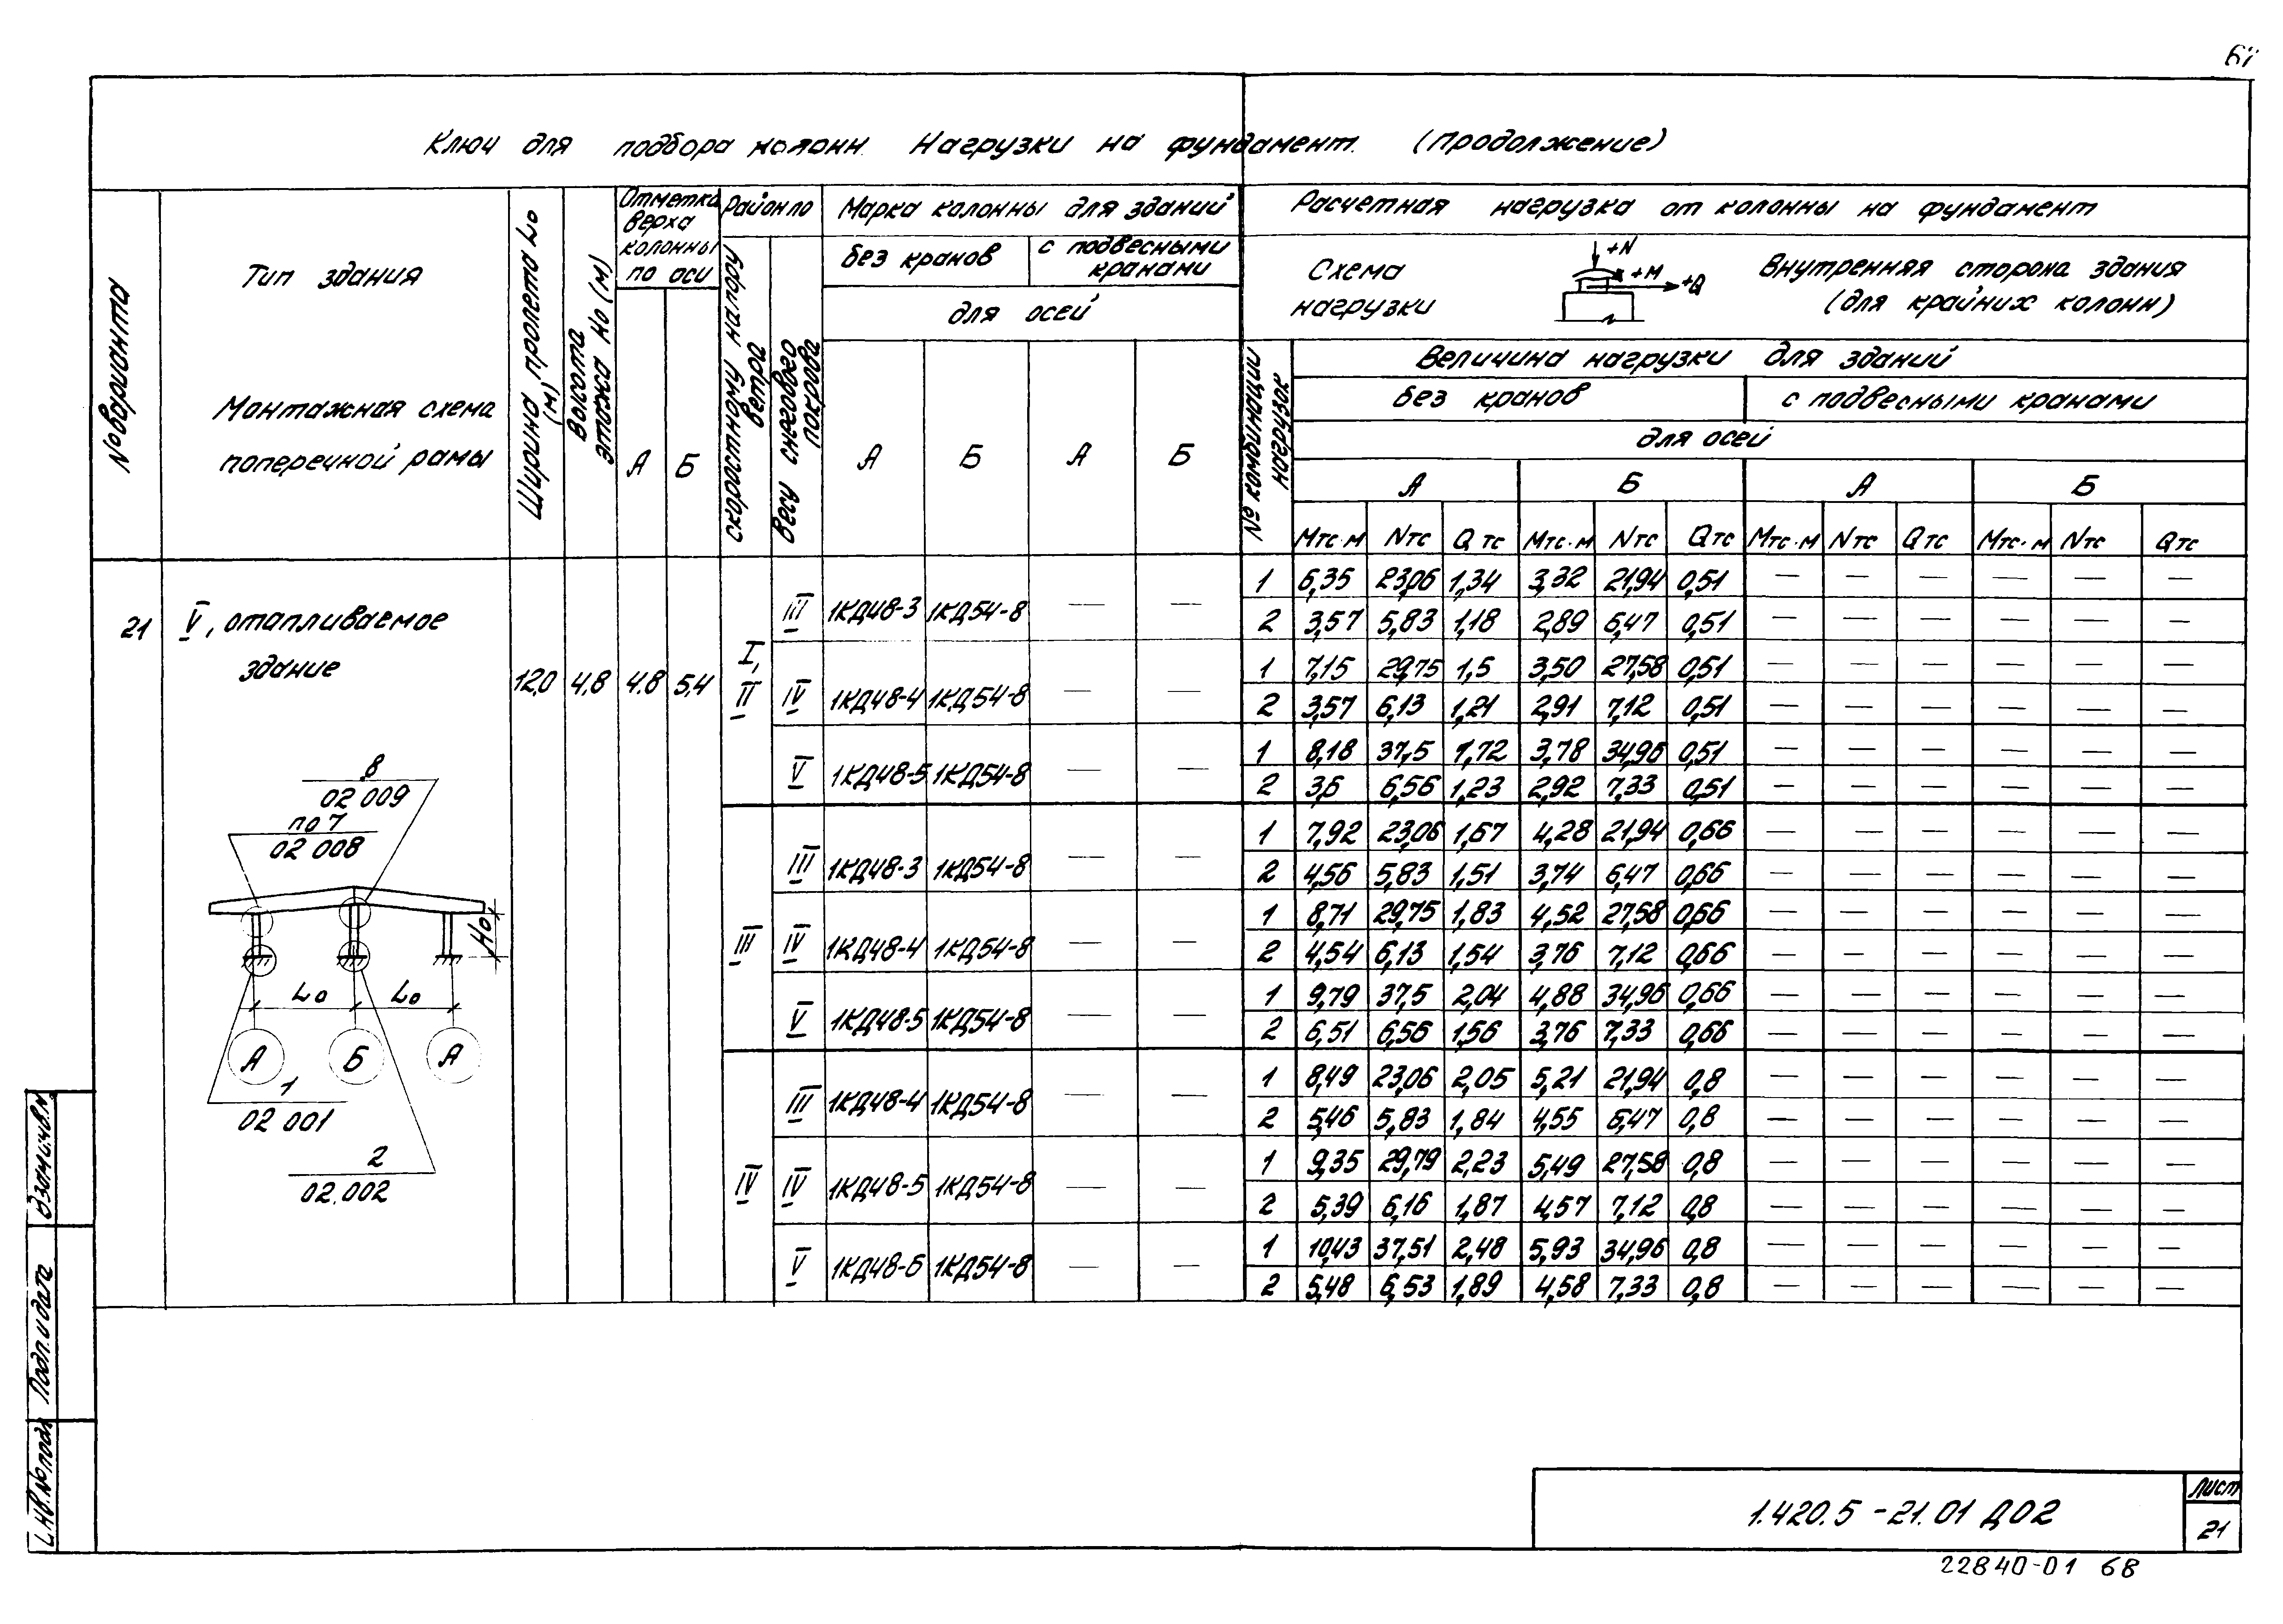 67
Ключ для подбора колонн. Нагрузки на фундамент. (Продолжение)
№ варианта
Тип здания
Монтажная схема
поперечной рамы
Ширина пролета L0 (м)
Высота этажа H0 (м)
Отметка верха колонны по оси
А Б
Район по
скоростному напору ветра
весу снегового покрова
Марка колонны для зданий
без кранов
с подвесными кранами
для осей
А Б А Б
Расчетная нагрузка от колонны на фундамент
Схема нагрузки
+N
+M
+Q
Внутренняя сторона здания
(для крайних колонн)
№ комбинации нагрузок
Величина нагрузки для зданий
без кранов
с подвесными кранами
для осей
А Б А Б
Мтс·м Nтс Qтс Мтс·м Nтс Qтс Мтс·м Nтс Qтс Мтс·м Nтс Qтс
21
V, отапливаемое
здание
12,0 4,8 4.8 5,4
I, II
III 1КД48-3 1КД54-8 — —
1 6,35 23,06 1,34 3,32 21,94 0,51 — — — — — —
2 3,57 5,83 1,18 2,89 6,47 0,51 — — — — — —
IV 1КД48-4 1КД54-8 — —
1 7,15 29,75 1,5 3,50 27,58 0,51 — — — — — —
2 3,57 6,13 1,21 2,91 7,12 0,51 — — — — — —
V 1КД48-5 1КД54-8 — —
1 8,18 37,5 1,72 3,78 34,96 0,51 — — — — — —
2 3,6 6,56 1,23 2,92 7,33 0,51 — — — — — —
III
III 1КД48-3 1КД54-8 — —
1 7,92 23,06 1,67 4,28 21,94 0,66 — — — — — —
2 4,56 5,83 1,51 3,74 6,47 0,66 — — — — — —
IV 1КД48-4 1КД54-8 — —
1 8,71 29,75 1,83 4,52 27,58 0,66 — — — — — —
2 4,54 6,13 1,54 3,76 7,12 0,66 — — — — — —
V 1КД48-5 1КД54-8 — —
1 9,79 37,5 2,04 4,88 34,96 0,66 — — — — — —
2 6,51 6,56 1,56 3,76 7,33 0,66 — — — — — —
IV
III 1КД48-4 1КД54-8 — —
1 8,49 23,06 2,05 5,21 21,94 0,8 — — — — — —
2 5,46 5,83 1,84 4,55 6,47 0,8 — — — — — —
IV 1КД48-5 1КД54-8 — —
1 9,35 29,79 2,23 5,49 27,58 0,8 — — — — — —
2 5,39 6,16 1,87 4,57 7,12 0,8 — — — — — —
V 1КД48-6 1КД54-8 — —
1 10,43 37,51 2,48 5,93 34,96 0,8 — — — — — —
2 5,48 6,53 1,89 4,58 7,33 0,8 — — — — — —
8
02 009
по 7
02 008
H0
L0 L0
А Б А
1
02 001
2
02.002
Взам.инв.№
Подп. и дата
Инв.№ подл
1.420.5-21.01 Д02
Лист
21
22840-01 68